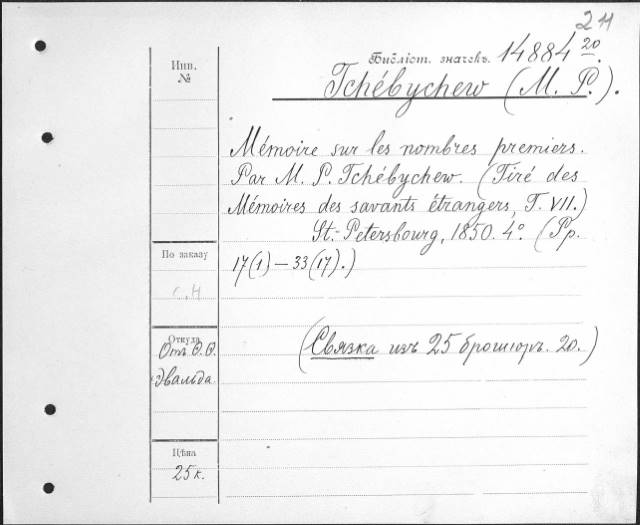 211
Библіот. значекъ. 14884 20.
Tchébychew (M. P.).
Инв.
№
Mémoire sur les nombres premiers.
Par M. P. Tchébychew. (Tiré des
Mémoires des savants étrangers, T. VII.)
St.-Petersbourg, 1850. 4°. (Pp.
17(1) — 33(17).)
По заказу
с.н
Откуда
Отъ Ѳ. Ѳ.
Эвальда.
(Связка изъ 25 брошюръ. 20.)
Цѣна
25 к.